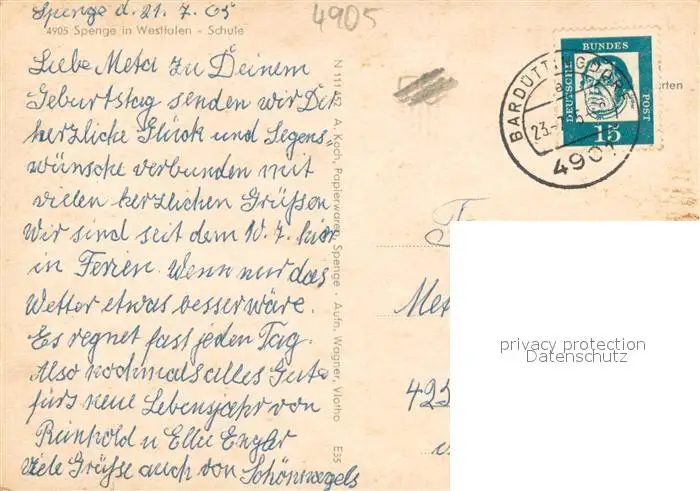 Spenge d. 21. 7. 65
4905
4905 Spenge in Westfalen - Schule
Liebe Meta zu Deinem
Geburtstag senden wir Dir
herzliche Glück und Segens"
wünsche verbunden mit
vielen herzlichen Grüßen
Wir sind seit dem 10. 7. hier
in Ferien. Wenn nur das
Wetter etwas besser wäre.
Es regnet fast jeden Tag.
Also nochmals alles Gute
fürs neue Lebensjahr von
Reinhold u Elli Engler
viele Grüße auch von
N 111 452 A. Koch, Papierwaren, Spenge - Aufn. Wagner, Vlotho E35
DEUTSCHE
BUNDES
POST
15
BARDÜTTINGDORF
23.-7.
4901
Fr
privacy protection
Datenschutz